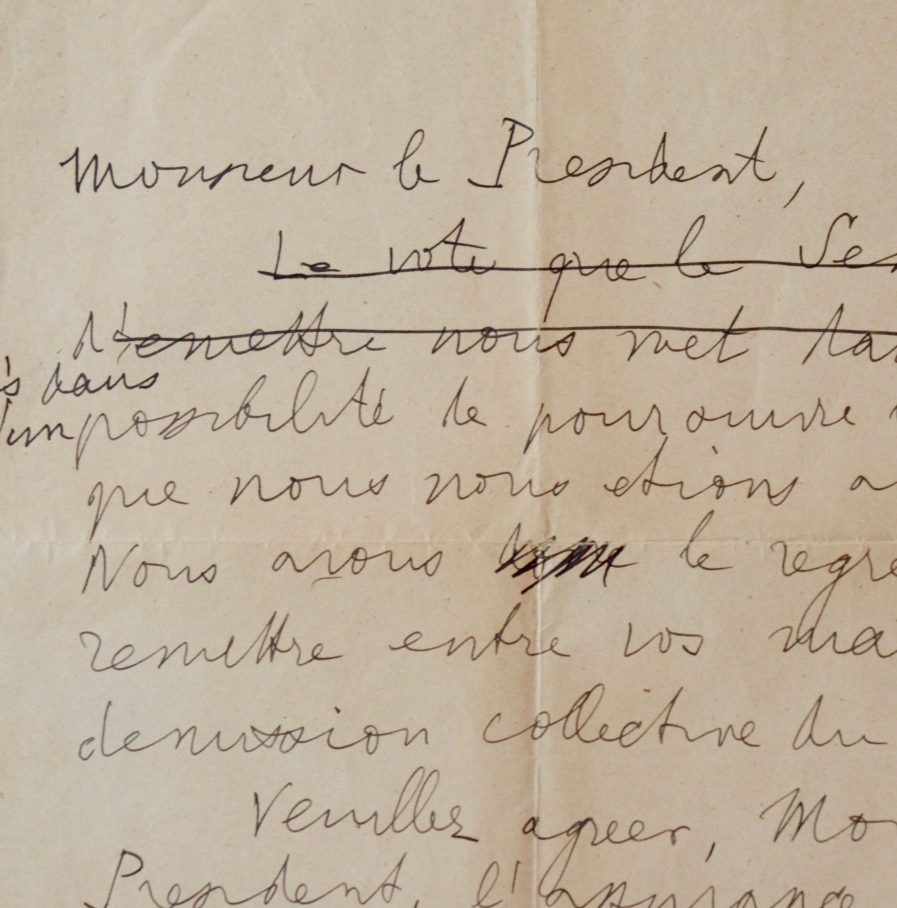 Monsieur le President,
Le vote que le Se
d'emettre nous met da
s dans
l'impossibilité de poursuivre
que nous nous etions a
Nous avons le regre
remettre entre vos mai
demission collective du
Veuillez agreer, Mo
President, l'assurance